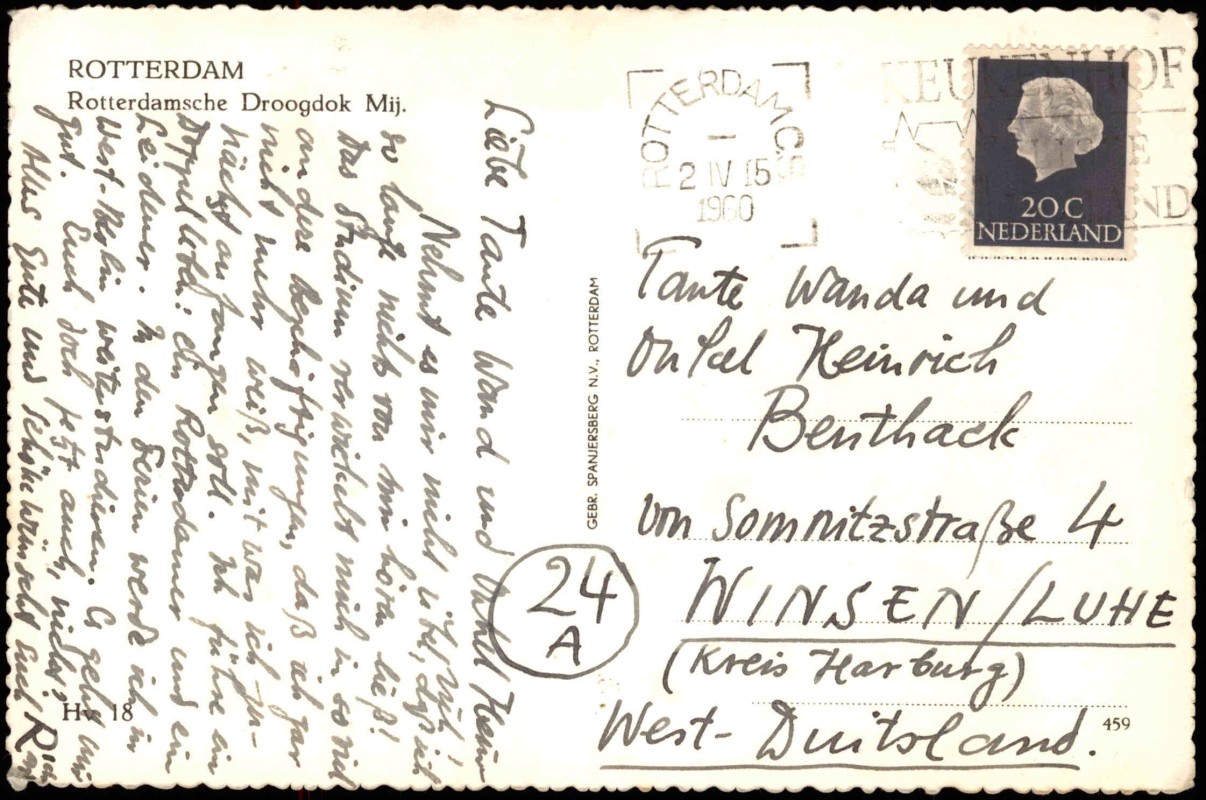 ROTTERDAM
Rotterdamsche Droogdok Mij.
Liebe Tante Wand und Onkel Heinr
Nehmt es mir nicht übel, daß ich
so lange nichts von mir hören ließ!
Das Studium verwickelt mich in so viel
andere Beschäftigungen, daß ich gar
nicht mehr weiß, mit was ich zu-
nächst anfangen soll. Ich führe ein
Doppelleben: ein Rotterdamer und ein
Leidener. In den Ferien werde ich in
West-Berlin weiterstudieren. Es geht mir
gut. Euch doch jetzt auch, nicht?
Alles Gute und Schöne wünscht Euch
Hv 18
GEBR. SPANJERSBERG N.V., ROTTERDAM
ROTTERDAM C.S.
2 IV 15
1960
KEUKENHOF
LISSE
HOLLAND
20 C
NEDERLAND
Tante Wanda und
Onkel Heinrich
Benthack
von Somnitzstraße 4
24
A
WINSEN/LUHE
(Kreis Harburg)
West-Duitsland.
459